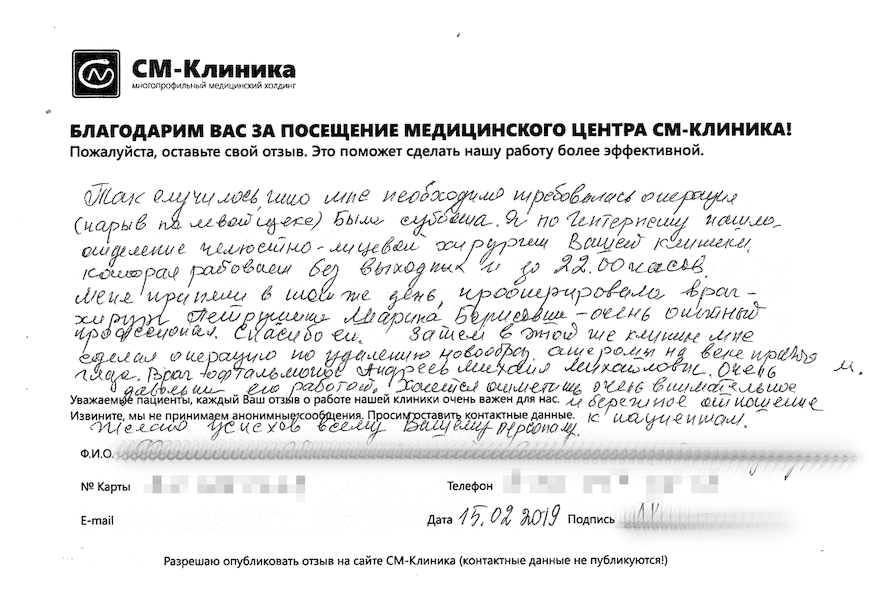 СМ-Клиника
многопрофильный медицинский холдинг
БЛАГОДАРИМ ВАС ЗА ПОСЕЩЕНИЕ МЕДИЦИНСКОГО ЦЕНТРА СМ-КЛИНИКА!
Пожалуйста, оставьте свой отзыв. Это поможет сделать нашу работу более эффективной.
Так случилось, что мне необходимо требовалась операция
(нарыв на левой щеке) Была суббота. Я по Интернету нашла
отделение челюстно-лицевой хирургии Вашей клиники,
которая работает без выходных и до 22.00 часов.
Меня приняли в тот же день, прооперировала врач-
хирург Марина Борисовна - очень опытный
профессионал. Спасибо ей. Затем в этой же клинике мне
сделал операцию по удалению новообраз. атеромы на веке правого
глаза. Врач Андреев Михаил Михайлович. Очень
довольна его работой. Хочется отметить очень внимательное
Уважаемые пациенты, каждый Ваш отзыв о работе нашей клиники очень важен для нас. и бережное отношение
Извините, мы не принимаем анонимные сообщения. Просим оставить контактные данные. к пациентам.
Желаю успехов всему Вашему персоналу.
Ф.И.О.
№ Карты Телефон
E-mail Дата 15.02 2019 Подпись
Разрешаю опубликовать отзыв на сайте СМ-Клиника (контактные данные не публикуются!)